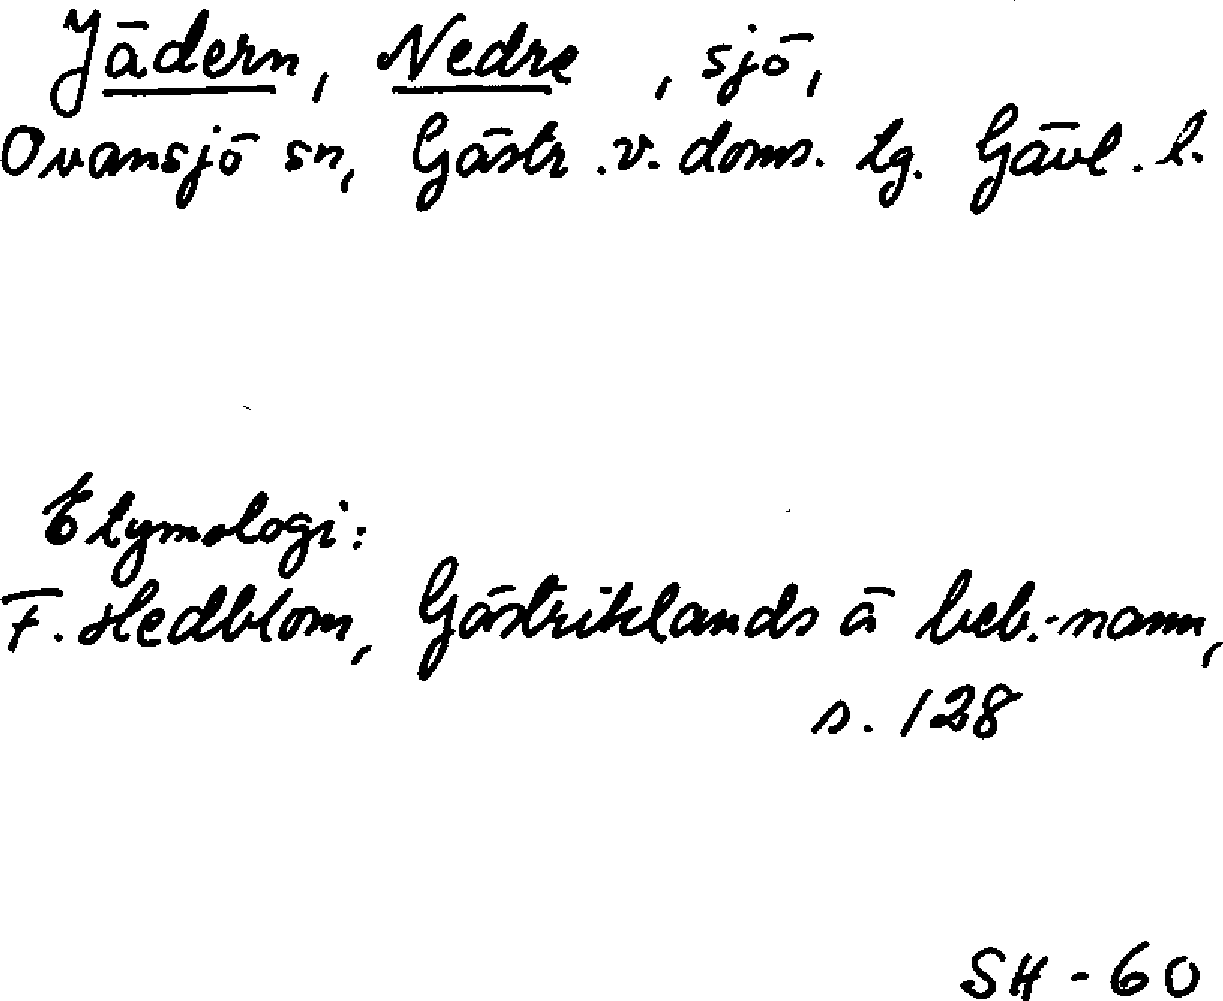 Jädern, Nedre, sjö,
Ovansjö sn, Gästr. v. doms. tg. Gävl. l.
Etymologi:
F. Hedblom, Gästriklands ä beb.-namn,
s. 128
SH - 60